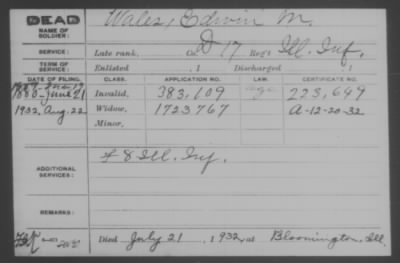 DEAD
NAME OF SOLDIER: Wales, Edwin M.
SERVICE: Late rank, Co. D 17 Reg't Ill. Inf.
TERM OF SERVICE: Enlisted , 1 Discharged , 1
DATE OF FILING. CLASS. APPLICATION NO. LAW. CERTIFICATE NO.
1880 June 21 Invalid, 383,109 age 223,649
1932, Aug. 22 Widow, 1723767 A-12-20-32
Minor,
ADDITIONAL SERVICES: F 8 Ill. Inf.
REMARKS:
Died July 21, 1932, at Bloomington, Ill.